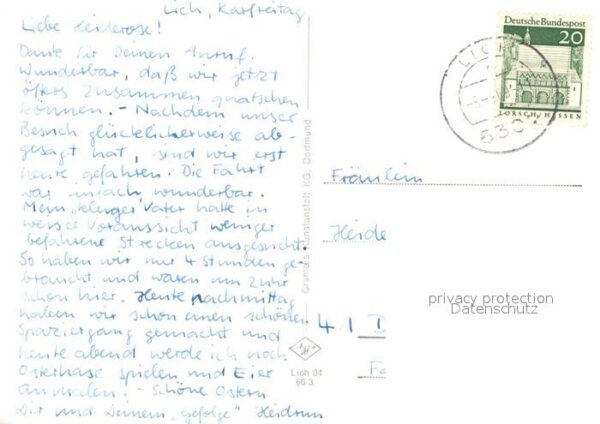 Lich, Karfreitag
Liebe Heiderose!
Danke für Deinen Anruf.
Wunderbar, daß wir jetzt
öfters zusammen quatschen
können. - Nachdem unser
Besuch glücklicherweise ab-
gesagt hat, sind wir erst
heute gefahren. Die Fahrt
war einfach wunderbar.
Mein Vater hatte in
weiser Voraussicht weniger
befahrene Strecken ausgesucht.
So haben wir nur 4 Stunden ge-
braucht und waren um 2 Uhr
schon hier. Heute nachmittag
haben wir schon einen schönen
Spaziergang gemacht und
heute abend werde ich noch
Osterhase spielen und Eier
anmalen! - Schöne Ostern
Dir und Deinem "gefolge" Heidrun
Cramers Kunstanstalt KG, Dortmund
Lich 04
66-3
Deutsche Bundespost
20
LORSCH/HESSEN
LICH
6302
Fräulein
Heide
41 D
privacy protection
Datenschutz